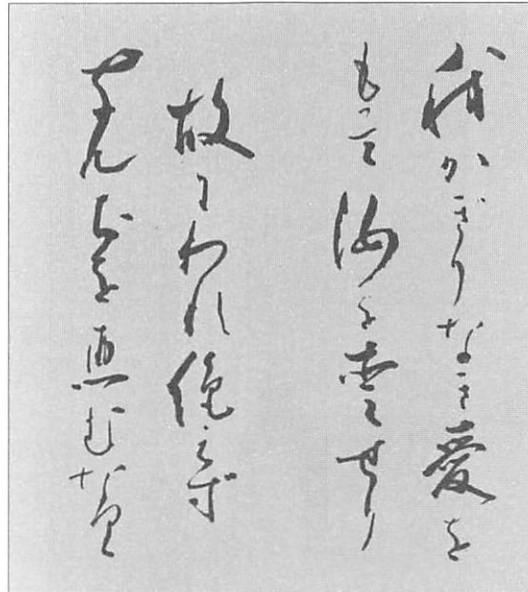 我かぎりなき愛を
もって汝を愛せり
故にわれ絶えず
なんぢを恵むなり